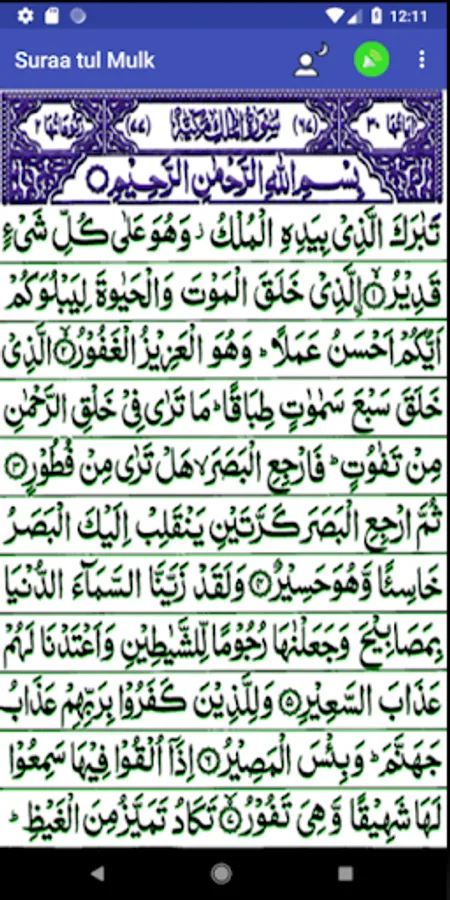 12:11
Suraa tul Mulk
اٰیَاتُهَا ۳۰ (۶۷) سُوْرَةُ الْمُلْكِ مَكِّيَّةٌ (۷۷) رُكُوْعَاتُهَا ۲
بِسْمِ اللّٰهِ الرَّحْمٰنِ الرَّحِيْمِ
تَبٰرَكَ الَّذِيْ بِيَدِهِ الْمُلْكُ ز وَهُوَ عَلٰى كُلِّ شَيْءٍ
قَدِيْرُ ۨ ۝۱ الَّذِيْ خَلَقَ الْمَوْتَ وَالْحَيٰوةَ لِيَبْلُوَكُمْ
اَيُّكُمْ اَحْسَنُ عَمَلًا ؕ وَهُوَ الْعَزِيْزُ الْغَفُوْرُ ۝۲ الَّذِيْ
خَلَقَ سَبْعَ سَمٰوٰتٍ طِبَاقًا ؕ مَا تَرٰى فِيْ خَلْقِ الرَّحْمٰنِ
مِنْ تَفٰوُتٍ ؕ فَارْجِعِ الْبَصَرَ ۙ هَلْ تَرٰى مِنْ فُطُوْرٍ ۝۳
ثُمَّ ارْجِعِ الْبَصَرَ كَرَّتَيْنِ يَنْقَلِبْ اِلَيْكَ الْبَصَرُ
خَاسِئًا وَّهُوَ حَسِيْرٌ ۝۴ وَلَقَدْ زَيَّنَّا السَّمَآءَ الدُّنْيَا
بِمَصَابِيْحَ وَجَعَلْنٰهَا رُجُوْمًا لِّلشَّيٰطِيْنِ وَاَعْتَدْنَا لَهُمْ
عَذَابَ السَّعِيْرِ ۝۵ وَلِلَّذِيْنَ كَفَرُوْا بِرَبِّهِمْ عَذَابُ
جَهَنَّمَ ؕ وَبِئْسَ الْمَصِيْرُ ۝۶ اِذَآ اُلْقُوْا فِيْهَا سَمِعُوْا
لَهَا شَهِيْقًا وَّهِيَ تَفُوْرُ ۝۷ تَكَادُ تَمَيَّزُ مِنَ الْغَيْظِ ؕ